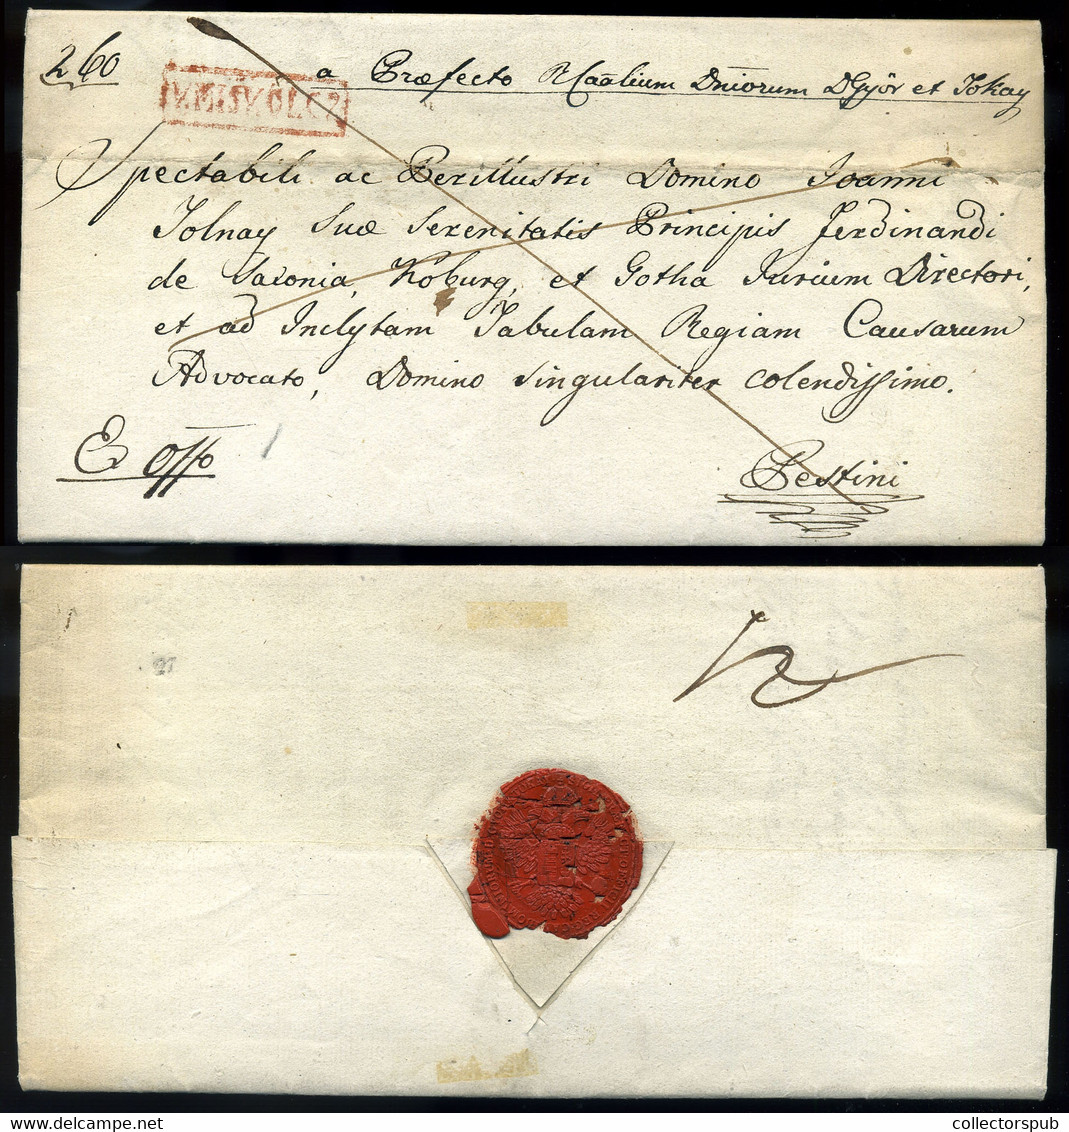 260
a Præfecto R Caalium Dniorum DGyör et Tokay
V.MISKOLCZ
Spectabili ac Perillustri Domino Joanni
Tolnay Suæ Serenitatis Principis Ferdinandi
de Saxonia, Koburg, et Gotha Jurium Directori,
et ad Inclytam Tabulam Regiam Causarum
Advocato, Domino singulariter colendissimo.
Ex Offo
Pestini
12
collectorspub